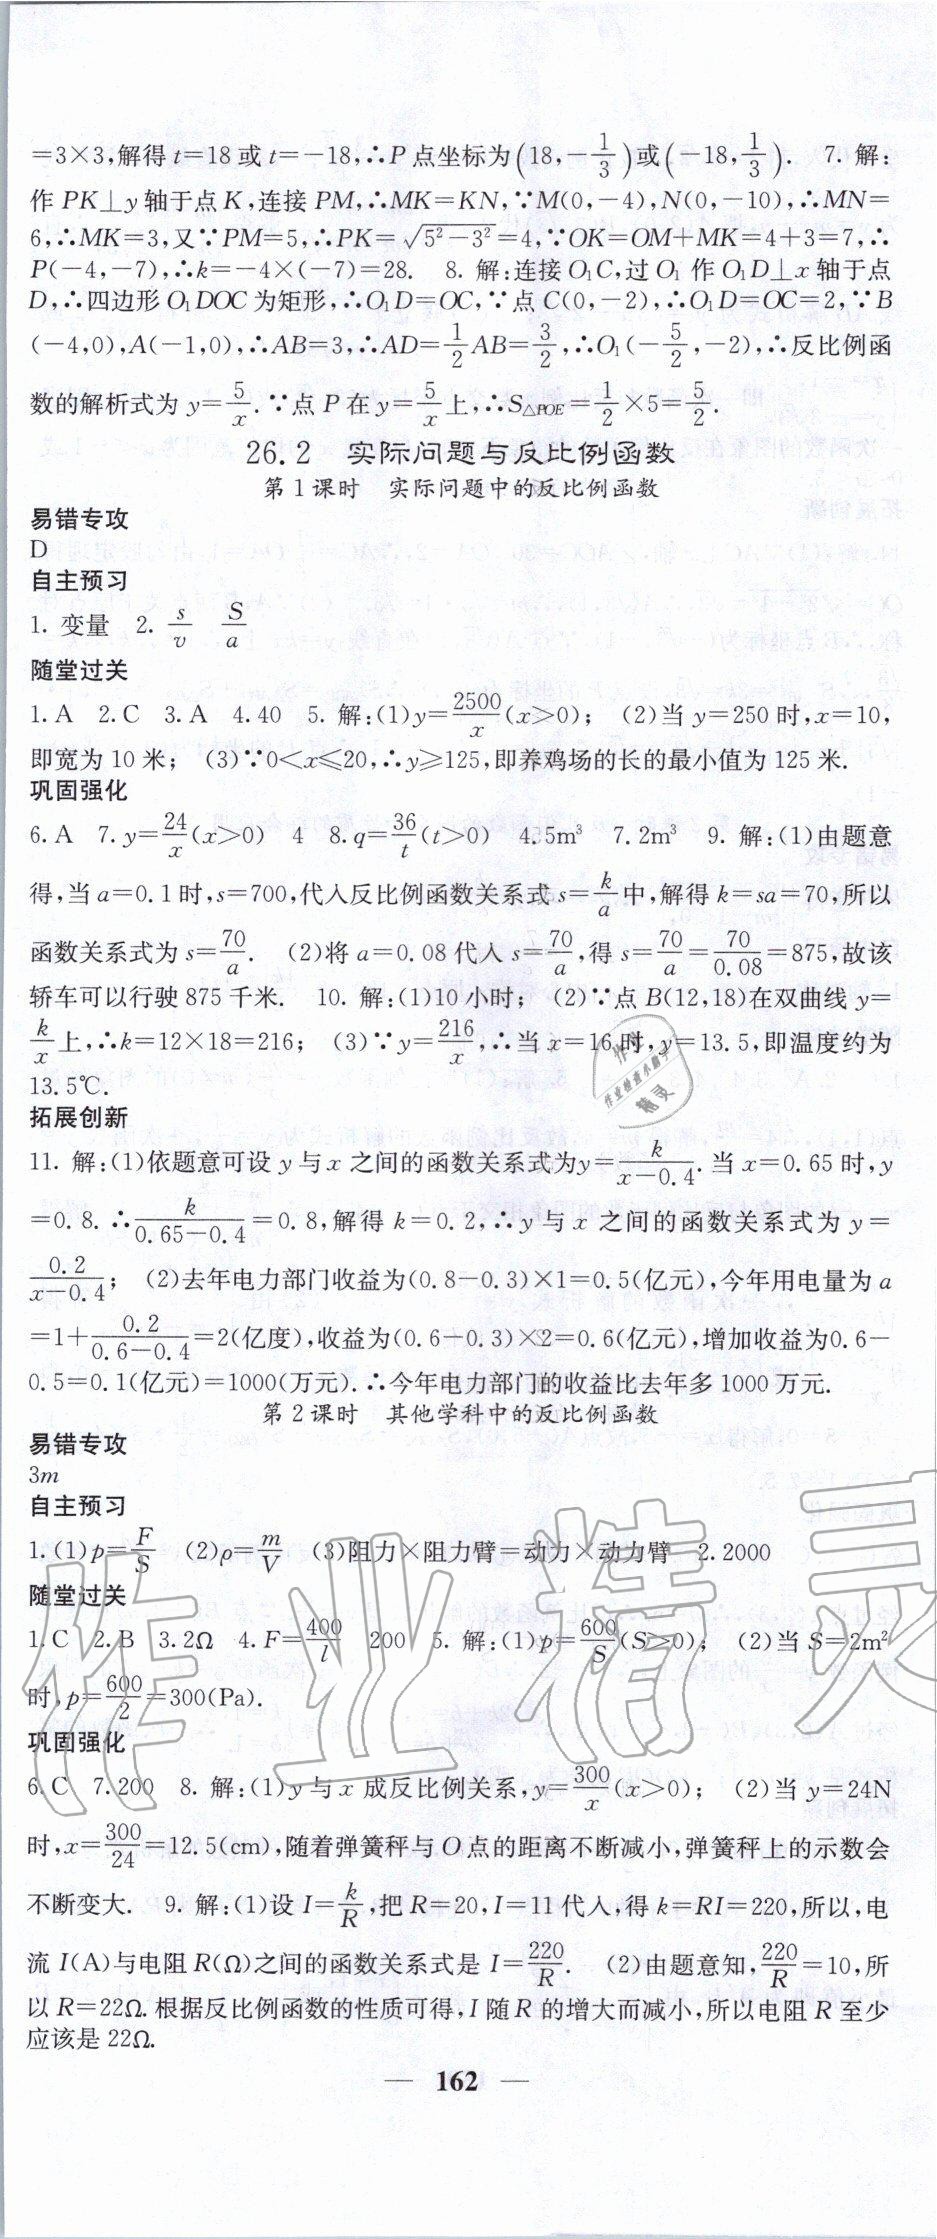 =3×3,解得 t=18 或 t=-18,∴P 点坐标为(18,-1/3)或(-18,1/3). 7. 解:
作 PK⊥y 轴于点 K,连接 PM,∴MK=KN,∵M(0,-4),N(0,-10),∴MN=
6,∴MK=3,又∵PM=5,∴PK=√(5²-3²)=4,∵OK=OM+MK=4+3=7,∴
P(-4,-7),∴k=-4×(-7)=28. 8. 解:连接 O₁C,过 O₁ 作 O₁D⊥x 轴于点
D,∴四边形 O₁DOC 为矩形,∴O₁D=OC,∵点 C(0,-2),∴O₁D=OC=2,∵B
(-4,0),A(-1,0),∴AB=3,∴AD=1/2AB=3/2,∴O₁(-5/2,-2),∴反比例函
数的解析式为 y=5/x.∵点 P 在 y=5/x上,∴S△POE=1/2×5=5/2.
26.2 实际问题与反比例函数
第 1 课时 实际问题中的反比例函数
易错专攻
D
自主预习
1. 变量 2. s/v S/a
随堂过关
1. A 2. C 3. A 4. 40 5. 解:(1)y=2500/x(x>0); (2)当 y=250 时,x=10,
即宽为 10 米; (3)∵0<x≤20,∴y≥125,即养鸡场的长的最小值为 125 米.
巩固强化
6. A 7. y=24/x(x>0) 4 8. q=36/t(t>0) 4.5m³ 7.2m³ 9. 解:(1)由题意
得,当 a=0.1 时,s=700,代入反比例函数关系式 s=k/a中,解得 k=sa=70,所以
函数关系式为 s=70/a. (2)将 a=0.08 代入 s=70/a,得 s=70/a=70/0.08=875,故该
轿车可以行驶 875 千米. 10. 解:(1)10 小时; (2)∵点 B(12,18)在双曲线 y=
k/x上,∴k=12×18=216; (3)∵y=216/x,∴当 x=16 时,y=13.5,即温度约为
13.5℃.
拓展创新
11. 解:(1)依题意可设 y 与 x 之间的函数关系式为y=k/(x-0.4).当 x=0.65 时,y
=0.8.∴k/(0.65-0.4)=0.8,解得 k=0.2,∴y 与 x 之间的函数关系式为 y=
0.2/(x-0.4); (2)去年电力部门收益为(0.8-0.3)×1=0.5(亿元),今年用电量为 a
=1+0.2/(0.6-0.4)=2(亿度),收益为(0.6-0.3)×2=0.6(亿元),增加收益为0.6-
0.5=0.1(亿元)=1000(万元).∴今年电力部门的收益比去年多 1000 万元.
第 2 课时 其他学科中的反比例函数
易错专攻
3m
自主预习
1. (1)p=F/S (2)ρ=m/V (3)阻力×阻力臂=动力×动力臂 2. 2000
随堂过关
1. C 2. B 3. 2Ω 4. F=400/l 200 5. 解:(1)p=600/S(S>0); (2)当 S=2m²
时,p=600/2=300(Pa).
巩固强化
6. C 7. 200 8. 解:(1)y 与 x 成反比例关系,y=300/x(x>0); (2)当 y=24N
时,x=300/24=12.5(cm),随着弹簧秤与 O 点的距离不断减小,弹簧秤上的示数会
不断变大. 9. 解:(1)设 I=k/R,把 R=20,I=11 代入,得 k=RI=220,所以,电
流 I(A)与电阻 R(Ω)之间的函数关系式是 I=220/R. (2)由题意知,220/R=10,所
以 R=22Ω.根据反比例函数的性质可得,I 随 R 的增大而减小,所以电阻 R 至少
应该是 22Ω.
— 162 —
作业精灵